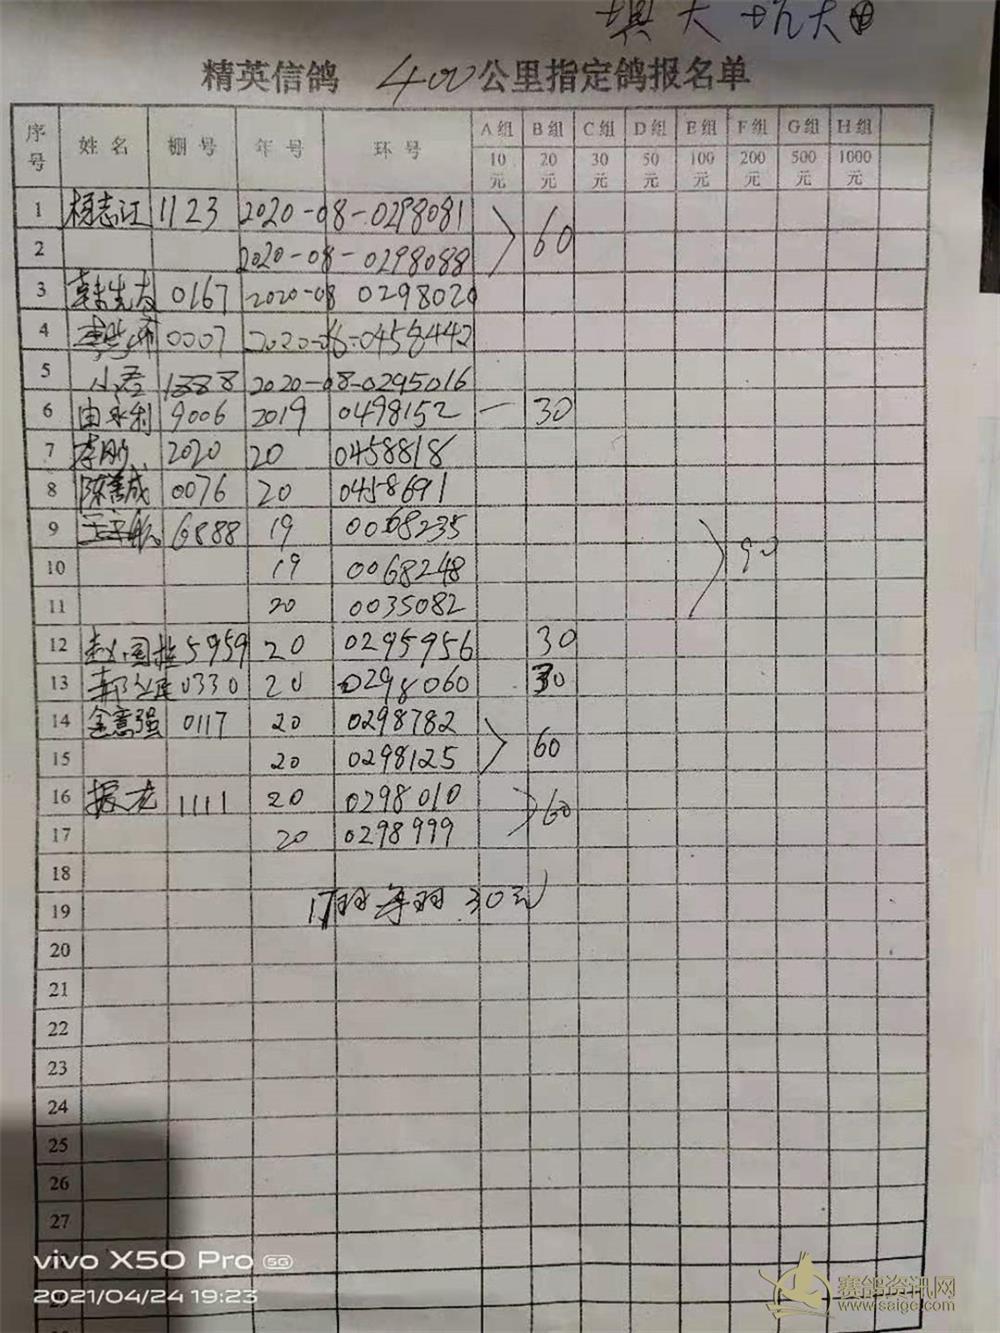 填大坑大田
精英信鸽 400公里指定鸽报名单
序号 姓名 棚号 年号 环号 A组 B组 C组 D组 E组 F组 G组 H组
10元 20元 30元 50元 100元 200元 500元 1000元
1 杨志江 1123 2020-08-0298081
60
2 2020-08-0298088
3 韩先友 0167 2020-08 0298020
4 0007 2020-08-0458442
5 小君 1888 2020-08-0295016
6 由永利 9006 2019 0498152 — 30
7 李刚 2020 20 0458818
8 陈善成 0076 20 0458691
9 王宇航 6888 19 0068235
10 19 0068248 90
11 20 0035082
12 赵国拴 5959 20 0295956 30
13 郭 0330 20 0298060 30
14 金意强 0117 20 0298782
60
15 20 0298125
16 振龙 1111 20 0298010
60
17 20 0298999
18
19 17羽每羽30元
20
21
22
23
24
25
26
27
28
vivo X50 Pro 5G
29
2021/04/24 19:23
赛鸽资讯网
www.saige.com